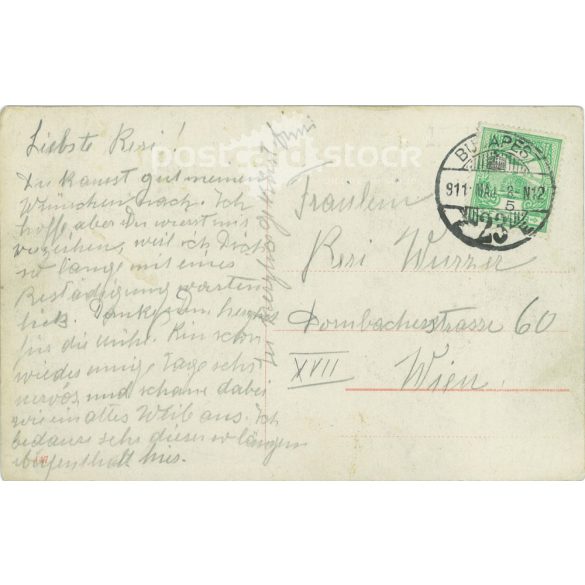 Liebste Resi!
Du kamst gut meinem
Wunschen nach. Ich
hoffe, aber Du wirst mir
verzeihen, weil ich Dich
so lange mit einer
Bestädigung warten
ließ. Danke Dir herzlichst
für die Mühe. Bin schon
wieder einige Tage sehr
nervös und schaue dabei
wie ein altes Weib aus. Ich
bedaure sehr diesen längern
Aufenthalt hier.
Fräulein
Resi Wurzer
Dornbacherstrasse 60
XVII
Wien
BUDAPEST
911 MÁJ 8 N12
5
23